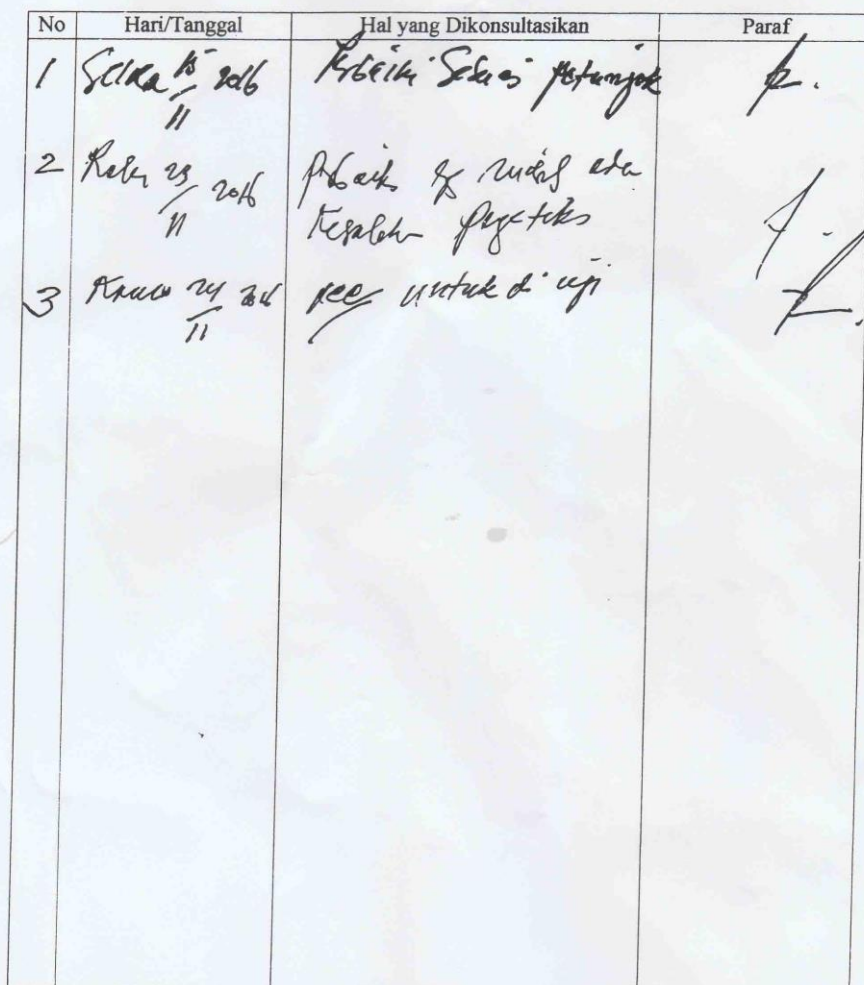 No Hari/Tanggal Hal yang Dikonsultasikan Paraf
1 Selasa 15/11 2016 Perbaiki Sesuai petunjuk
2 Rabu 23/11 2016 Perbaiki yg masih ada
Kesalahan
3 Kamis 24/11 2016 acc untuk di uji